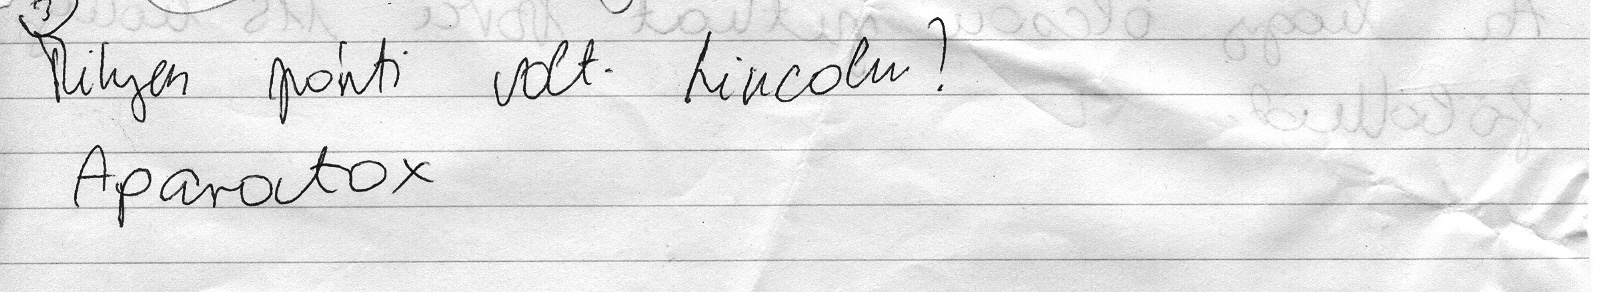 3
Milyen pónti volt Lincoln?
Aparatox